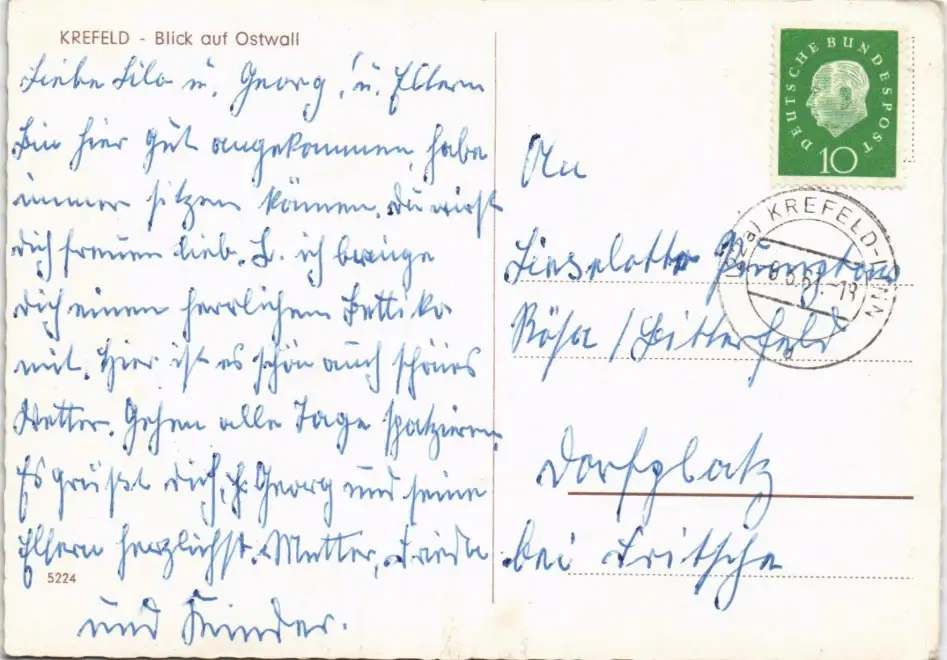 KREFELD - Blick auf Ostwall
Liebe Lilo u. Georg, u. Eltern
Bin hier gut angekommen, habe
immer sitzen können. Du wirst
dich freuen lieb. L. ich bringe
dich einen herrlichen Pettiko
mit. Hier ist es schön auch schönes
Wetter. Gehen alle Tage spatzieren
Es grüßt dich, Georg und seine
Eltern herzlichst. Mutter, Frieda
und Kinder.
5224
DEUTSCHE BUNDESPOST
10
KREFELD-LINN
An
Lieselotte
Rösa / Bitterfeld
Dorfplatz
bei Fritsche